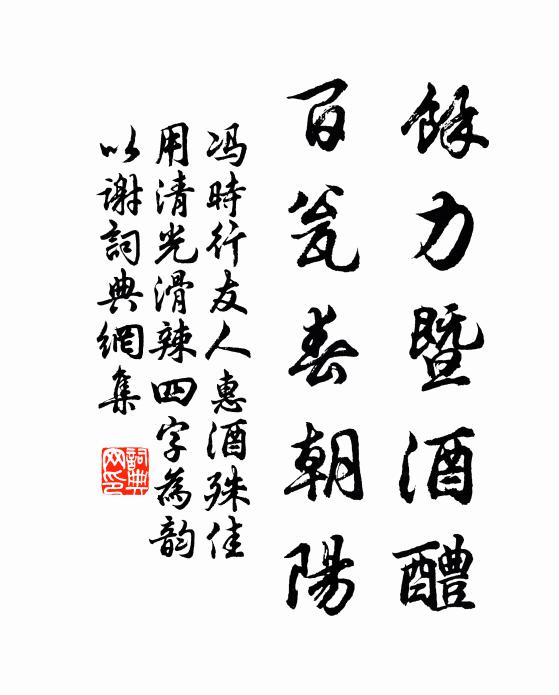 餘力暨酒醴
百瓮春朝陽
冯時行友人惠酒殊佳
用清光滑辣四字為韵
以谢詞典網集
詞典網印